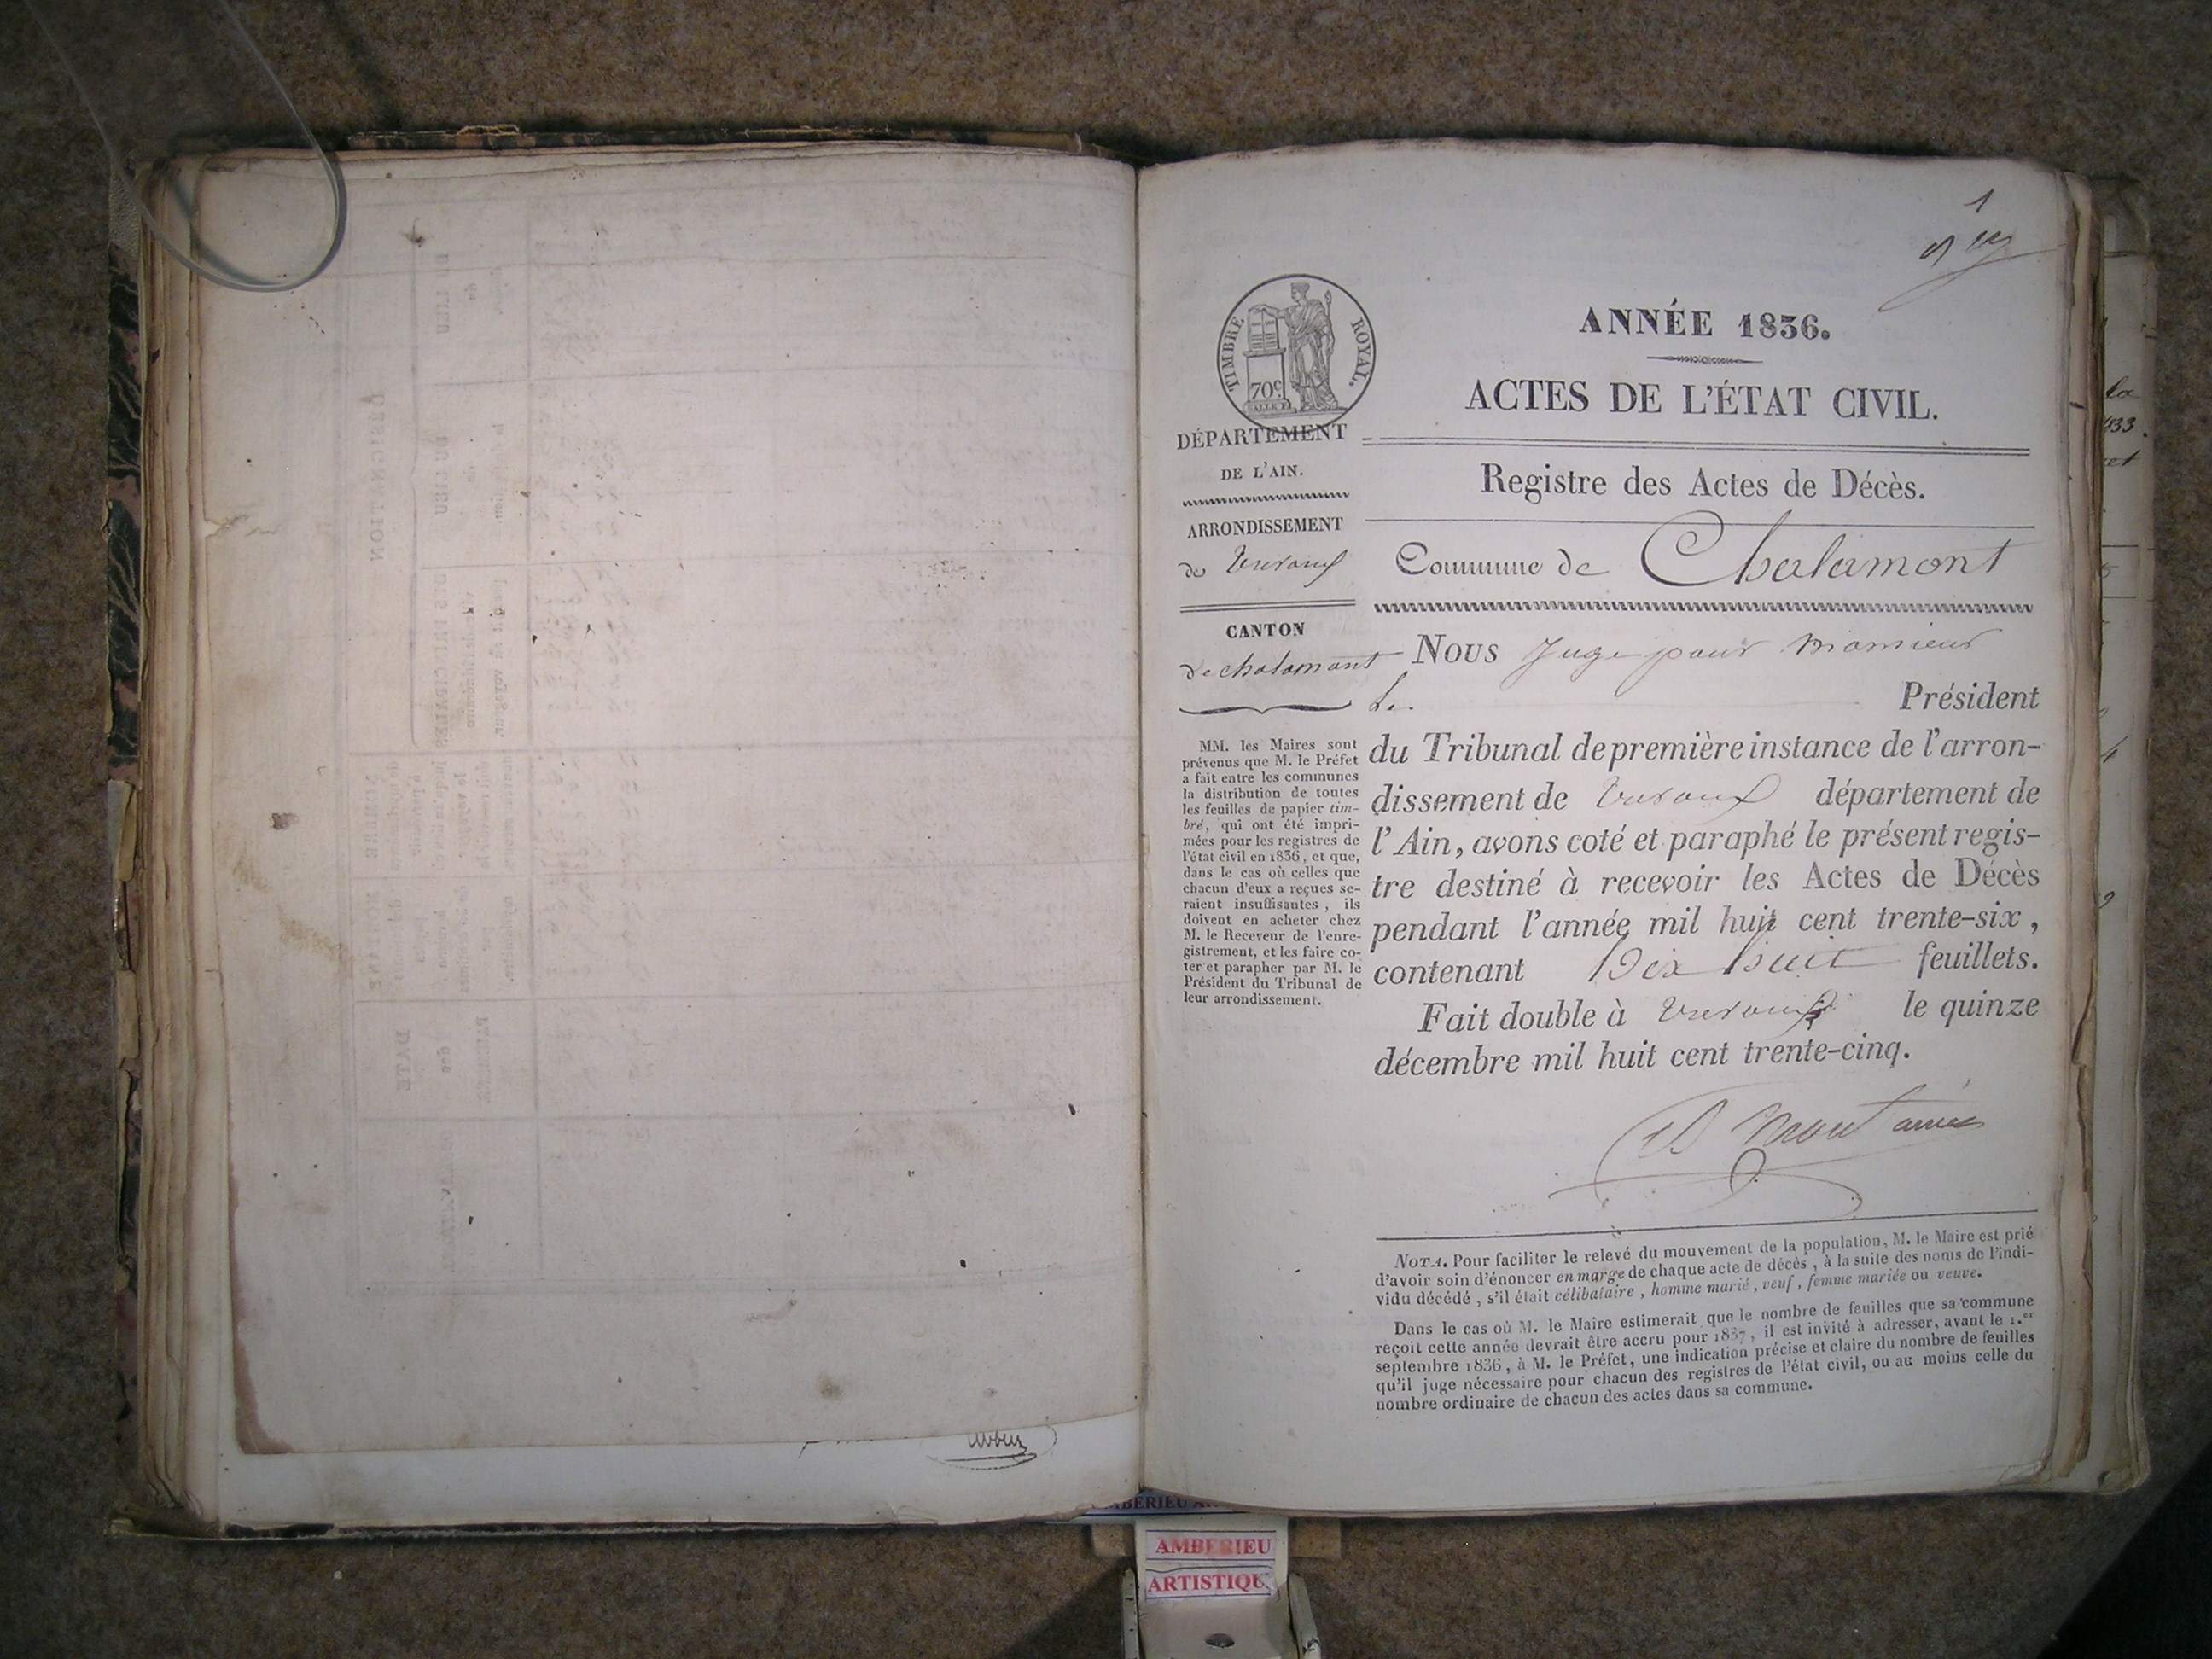 1
TIMBRE ROYAL.
70c
ANNÉE 1836.
ACTES DE L'ÉTAT CIVIL.
DÉPARTEMENT
DE L'AIN.
Registre des Actes de Décès.
ARRONDISSEMENT
de Trevoux
Commune de Chalamont
CANTON
de chalamont
Nous Juge pour Monsieur
Le Président
du Tribunal de première instance de l'arron-
dissement de Trevoux département de
l'Ain, avons coté et paraphé le présent regis-
tre destiné à recevoir les Actes de Décès
pendant l'année mil huit cent trente-six,
contenant Dix huit feuillets.
Fait double à Trevoux le quinze
décembre mil huit cent trente-cinq.
MM. les Maires sont
prévenus que M. le Préfet
a fait entre les communes
la distribution de toutes
les feuilles de papier tim-
bré, qui ont été impri-
mées pour les registres de
l'état civil en 1836, et que,
dans le cas où celles que
chacun d'eux a reçues se-
raient insuffisantes, ils
doivent en acheter chez
M. le Receveur de l'enre-
gistrement, et les faire co-
ter et parapher par M. le
Président du Tribunal de
leur arrondissement.
NOTA. Pour faciliter le relevé du mouvement de la population, M. le Maire est prié
d'avoir soin d'énoncer en marge de chaque acte de décès, à la suite des noms de l'indi-
vidu décédé, s'il était célibataire, homme marié, veuf, femme mariée ou veuve.
Dans le cas où M. le Maire estimerait que le nombre de feuilles que sa commune
reçoit cette année devrait être accru pour 1837, il est invité à adresser, avant le 1.er
septembre 1836, à M. le Préfet, une indication précise et claire du nombre de feuilles
qu'il juge nécessaire pour chacun des registres de l'état civil, ou au moins celle du
nombre ordinaire de chacun des actes dans sa commune.
AMBERIEU
ARTISTIQUE